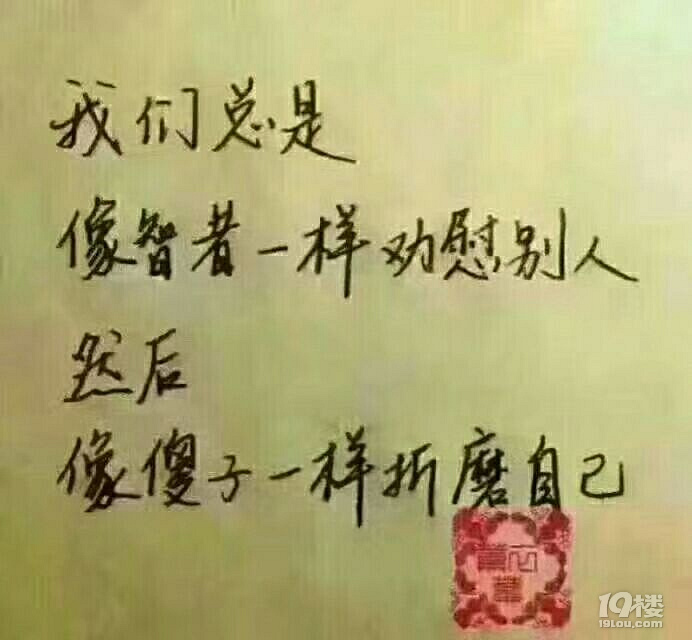 我们总是
像智者一样劝慰别人
然后
像傻子一样折磨自己
19楼
19lou.com